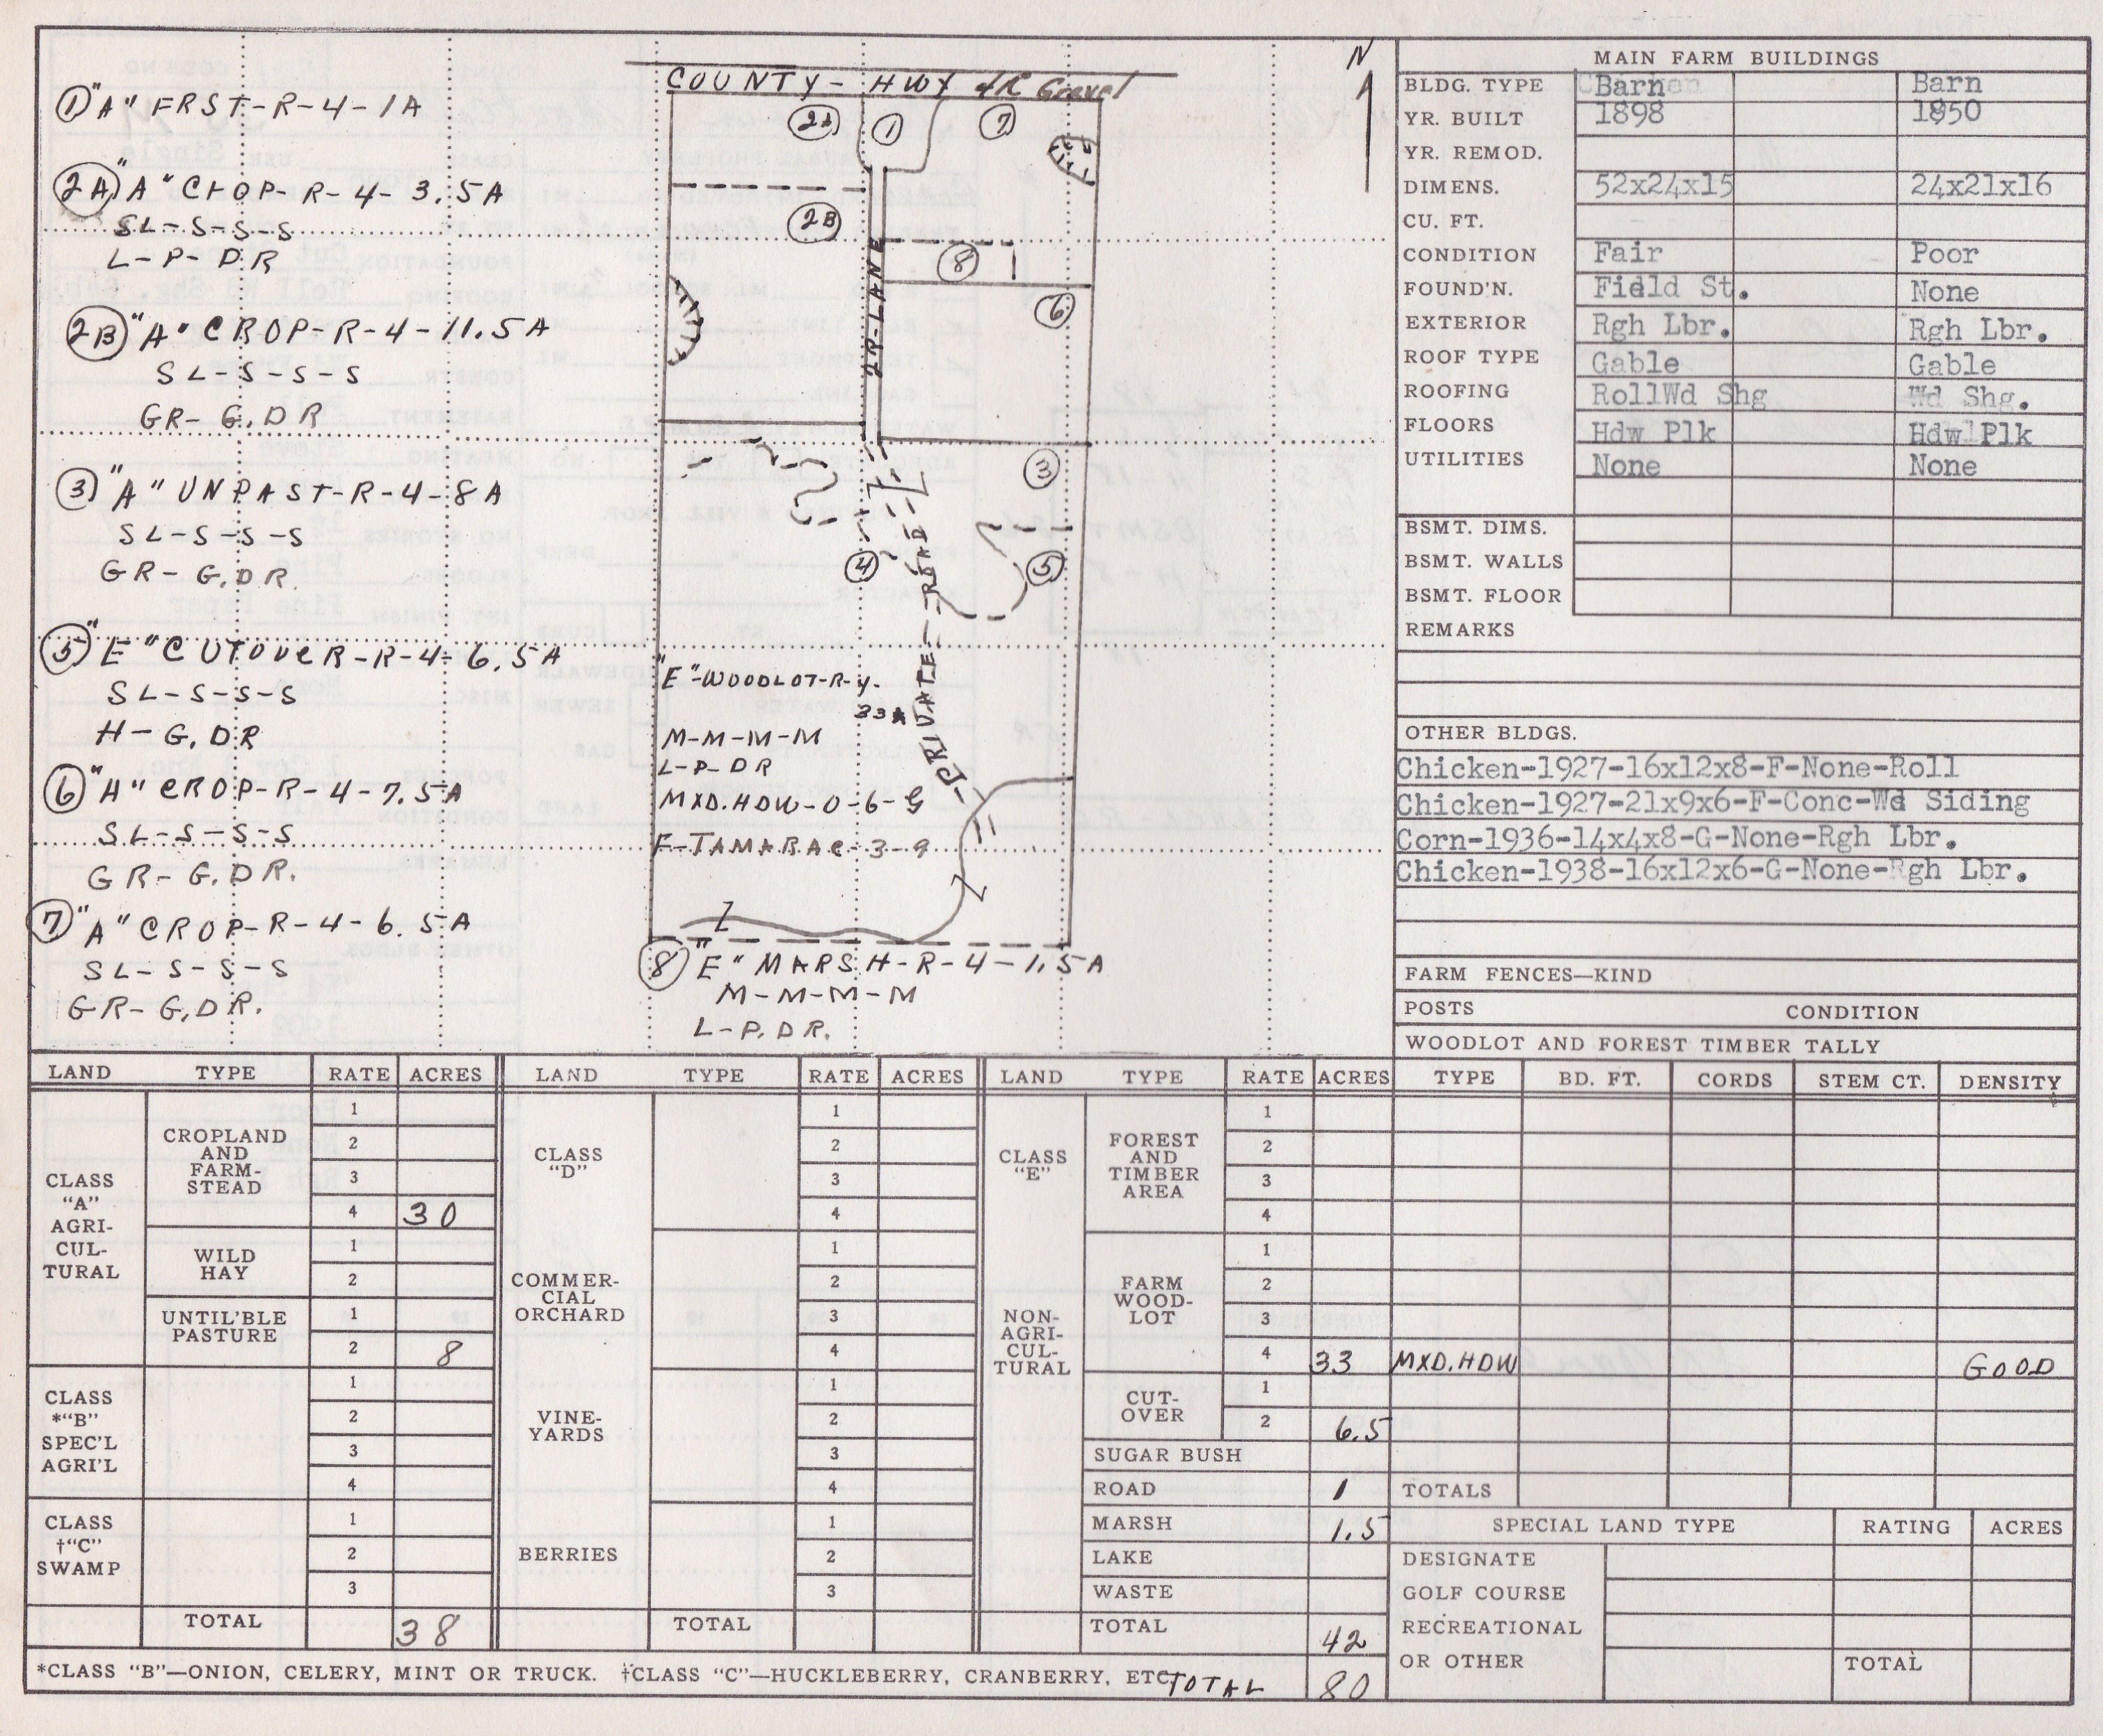 ① "A" FRST-R-4-1A
2A "A" CROP-R-4-3.5A
SL-S-S-S
L-P-DR
2B "A" CROP-R-4-11.5A
SL-S-S-S
GR-G.DR
③ "A" UNPAST-R-4-8A
SL-S-S-S
GR-G.DR
⑤ "E" CUTOVER-R-4-6.5A
SL-S-S-S
H-G.DR
⑥ "A" CROP-R-4-7.5A
SL-S-S-S
GR-G.DR.
⑦ "A" CROP-R-4-6.5A
SL-S-S-S
GR-G.DR.
COUNTY-HWY 4R Gravel
N
2A ① ⑦
2B
⑧
⑥
2R-LANE
③
④ ⑤
PRIVATE-ROAD
"E"-WOODLOT-R-4.
33A
M-M-M-M
L-P-DR
MXD.HDW-0-6-G
F-TAMARAC-3-9
⑧ "E" MARSH-R-4-1.5A
M-M-M-M
L-P.DR.
MAIN FARM BUILDINGS
BLDG. TYPE Barn Barn
YR. BUILT 1898 1850
YR. REMOD.
DIMENS. 52x24x15 24x21x16
CU. FT.
CONDITION Fair Poor
FOUND'N. Field St. None
EXTERIOR Rgh Lbr. Rgh Lbr.
ROOF TYPE Gable Gable
ROOFING RollWd Shg Wd Shg.
FLOORS Hdw Plk Hdw Plk
UTILITIES None None
BSMT. DIMS.
BSMT. WALLS
BSMT. FLOOR
REMARKS
OTHER BLDGS.
Chicken-1927-16x12x8-F-None-Roll
Chicken-1927-21x9x6-F-Conc-Wd Siding
Corn-1936-14x4x8-G-None-Rgh Lbr.
Chicken-1938-16x12x6-G-None-Rgh Lbr.
FARM FENCES—KIND
POSTS CONDITION
WOODLOT AND FOREST TIMBER TALLY
TYPE BD. FT. CORDS STEM CT. DENSITY
MXD.HDW GOOD
TOTALS
LAND TYPE RATE ACRES
CLASS "A" AGRI-CUL-TURAL
CROPLAND AND FARM-STEAD
1
2
3
4 30
WILD HAY
1
2
UNTIL'BLE PASTURE
1
2 8
CLASS *"B" SPEC'L AGRI'L
1
2
3
4
CLASS †"C" SWAMP
1
2
3
TOTAL 38
LAND TYPE RATE ACRES
CLASS "D"
1
2
3
4
COMMER-CIAL ORCHARD
1
2
3
4
VINE-YARDS
1
2
3
4
BERRIES
1
2
3
TOTAL
LAND TYPE RATE ACRES
CLASS "E"
NON-AGRI-CUL-TURAL
FOREST AND TIMBER AREA
1
2
3
4
FARM WOOD-LOT
1
2
3
4 33
CUT-OVER
1
2 6.5
SUGAR BUSH
ROAD 1
MARSH 1.5
LAKE
WASTE
TOTAL 42
SPECIAL LAND TYPE RATING ACRES
DESIGNATE
GOLF COURSE
RECREATIONAL
OR OTHER TOTAL
*CLASS "B"—ONION, CELERY, MINT OR TRUCK. †CLASS "C"—HUCKLEBERRY, CRANBERRY, ETC. TOTAL 80